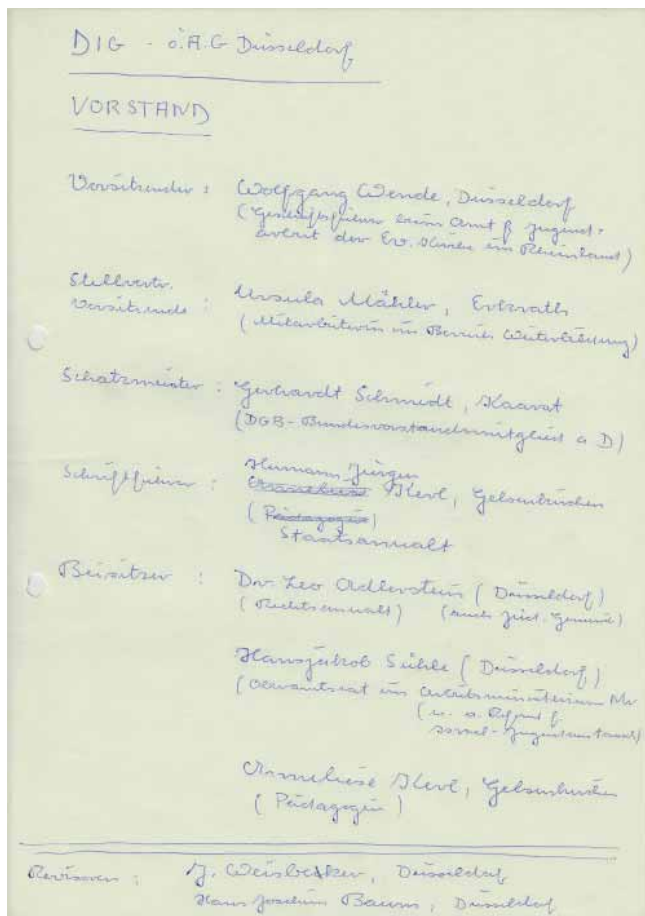 DIG - ö.A.G Düsseldorf
VORSTAND
Vorsitzender : Wolfgang Wende, Düsseldorf
(Geschäftsführer beim Amt f. Jugend-
arbeit der Ev. Kirche im Rheinland)
Stellvertr.
Vorsitzende : Ursula Mähler, Erkrath
(Mitarbeiterin im Bereich Weiterbildung)
Schatzmeister : Gerhardt Schmidt, Kaarst
(DGB-Bundesvorstandsmitglied a D)
Hermann Jürgen
Schriftführer : Anneliese Kerl, Gelsenkirchen
(Pädagogin)
Staatsanwalt
Beisitzer : Dr. Leo Adlerstein (Düsseldorf)
(Rechtsanwalt) (auch jüd. Gemeinde)
Hansjakob Sühle (Düsseldorf)
(Oberamtsrat im Arbeitsministerium
(u. a. Referent f.
Anneliese Kerl, Gelsenkirchen
(Pädagogin)
Revisoren : J. Weisbecker, Düsseldorf
Hans Joachim Baums, Düsseldorf